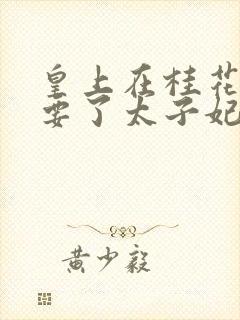 皇上在桂花
要了太子妃
黄少毅